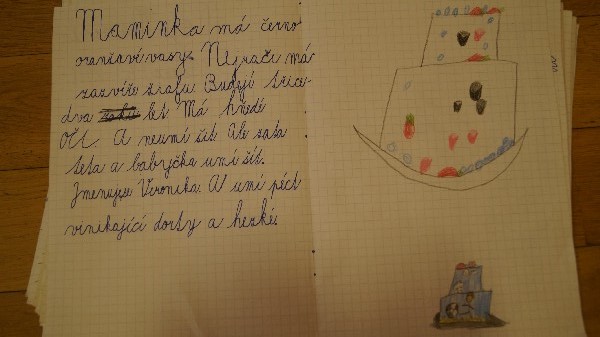 Maminka má černo
oranžavé vasy. Nejračí má
zazvíře žrafu. Budyjí třice
dva let. Má hňedé
oči. A neumí šít. Ale zata
teta a babyčka umí šít.
Jmenujse Veronika. A umí péct
vinikající dorty a hezké.